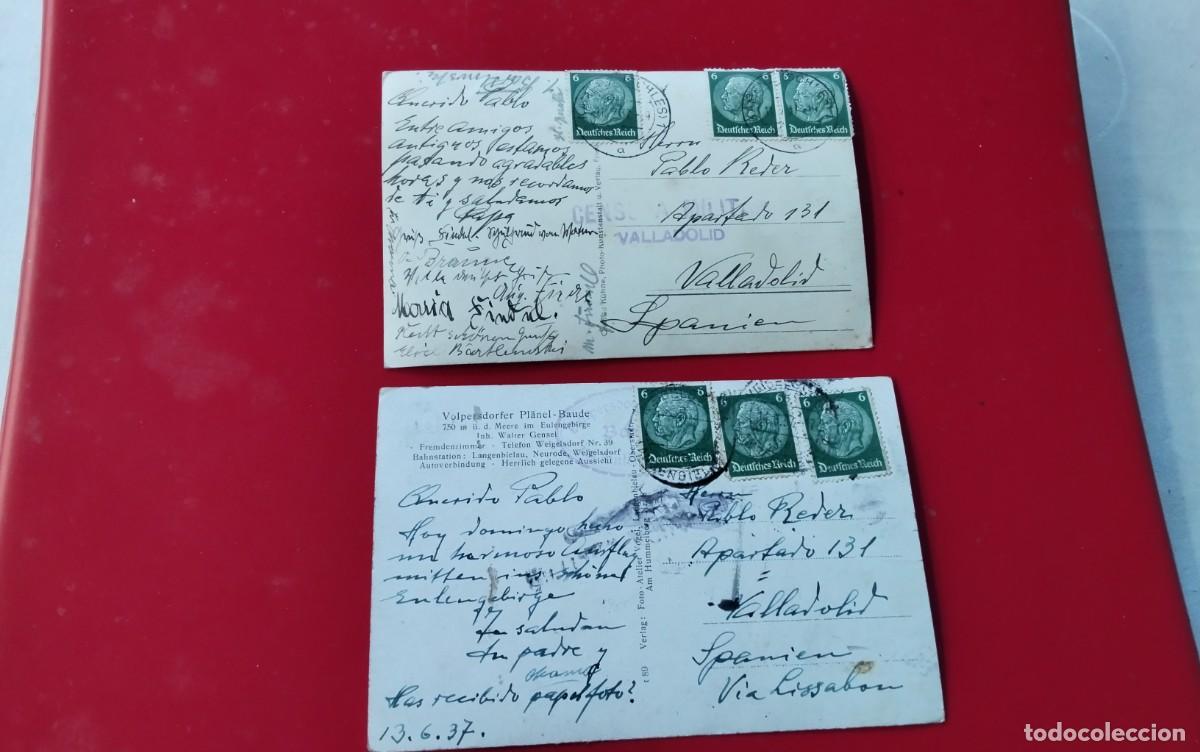 Querido Pablo
Entre amigos
antiguos estamos
pasando agradables
horas y nos recordamos
de ti y saludamos
Papa
Maria Findel.
Recht schönen Gruß
6
Deutsches Reich
6
Deutsches Reich
6
Deutsches Reich
Herrn
Pablo Reder
Apartado 131
Valladolid
Spanien
CENSURA MILIT
VALLADOLID
Kühne, Photo-Kunstanstalt u. Verlag
Volpersdorfer Plänel-Baude
750 m ü. d. Meere im Eulengebirge
Inh. Walter Gensel
- Fremdenzimmer - Telefon Weigelsdorf Nr. 39
Bahnstation: Langenbielau, Neurode, Weigelsdorf
Autoverbindung - Herrlich gelegene Aussicht
Querido Pablo
Hoy domingo hago
un hermoso Ausflug
mitten ins schöne
Eulengebirge
Te saludan
tu padre y
Has recibido papel foto?
13.6.37.
t 80 Verlag: Foto-Atelier Vogel, Langenbielau-Ober
Am Hummelberg
6
Deutsches Reich
6
Deutsches Reich
6
Deutsches Reich
Herrn
Pablo Reder
Apartado 131
Valladolid
Spanien
Via Lissabon
todocoleccion